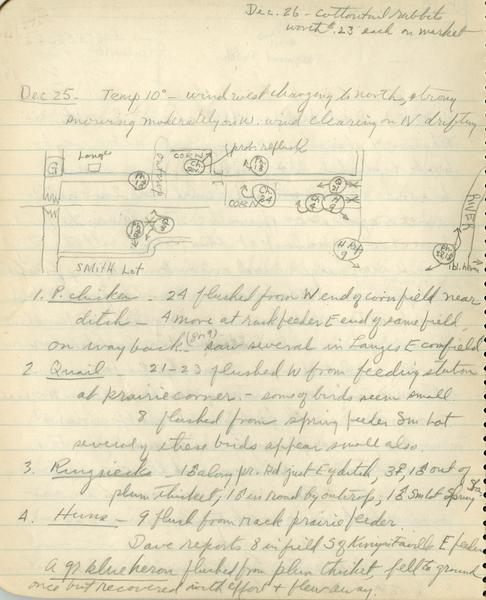 Dec. 26 - cottontail rabbits
worth $.23 each on market
Dec 25. Temp 10° - wind west changing to north, strong
snowing moderately on W. wind clearing on N drifting
Lange
CORN
prob. reflush
CORN
RIVER
H Ptr
9
SMITH Lot
bl. heron
1. P. chicken - 24 flushed from W end of corn field near
ditch - 4 more at rack feeder E end of same field
on way back - saw several in Langes E cornfield
2. Quail - 21-23 flushed W from feeding station
at prairie corner. - some of birds seem small
8 flushed from spring feeder Sm Lot
several of these birds appear small also
3. Ringnecks - 1♂ along pr. Rd just E of ditch, 3♀, 1♂ out of
plum thicket, 1♂ in road by outcrop, 1♂ Sm Lot Spring
4. Huns - 9 flush from rack prairie feeder.
Dave reports 8 in field S of E feeder
A gr. blue heron flushed from plum thicket, fell to ground
once but recovered with effort + flew away.